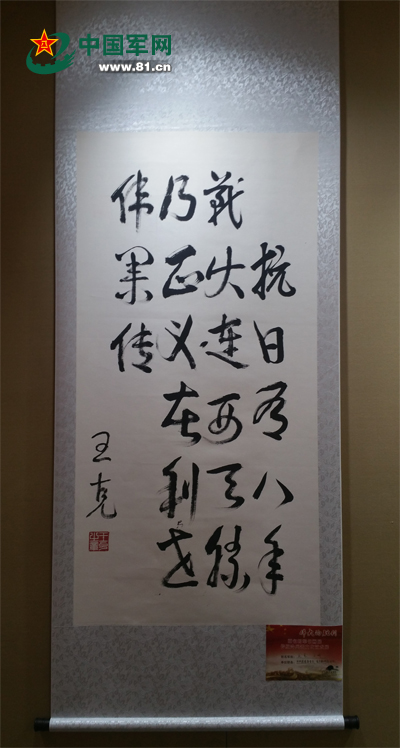 中国军网
www.81.cn
抗日有八年
战火连西天胜
乃正义在利世
伟業传
王克